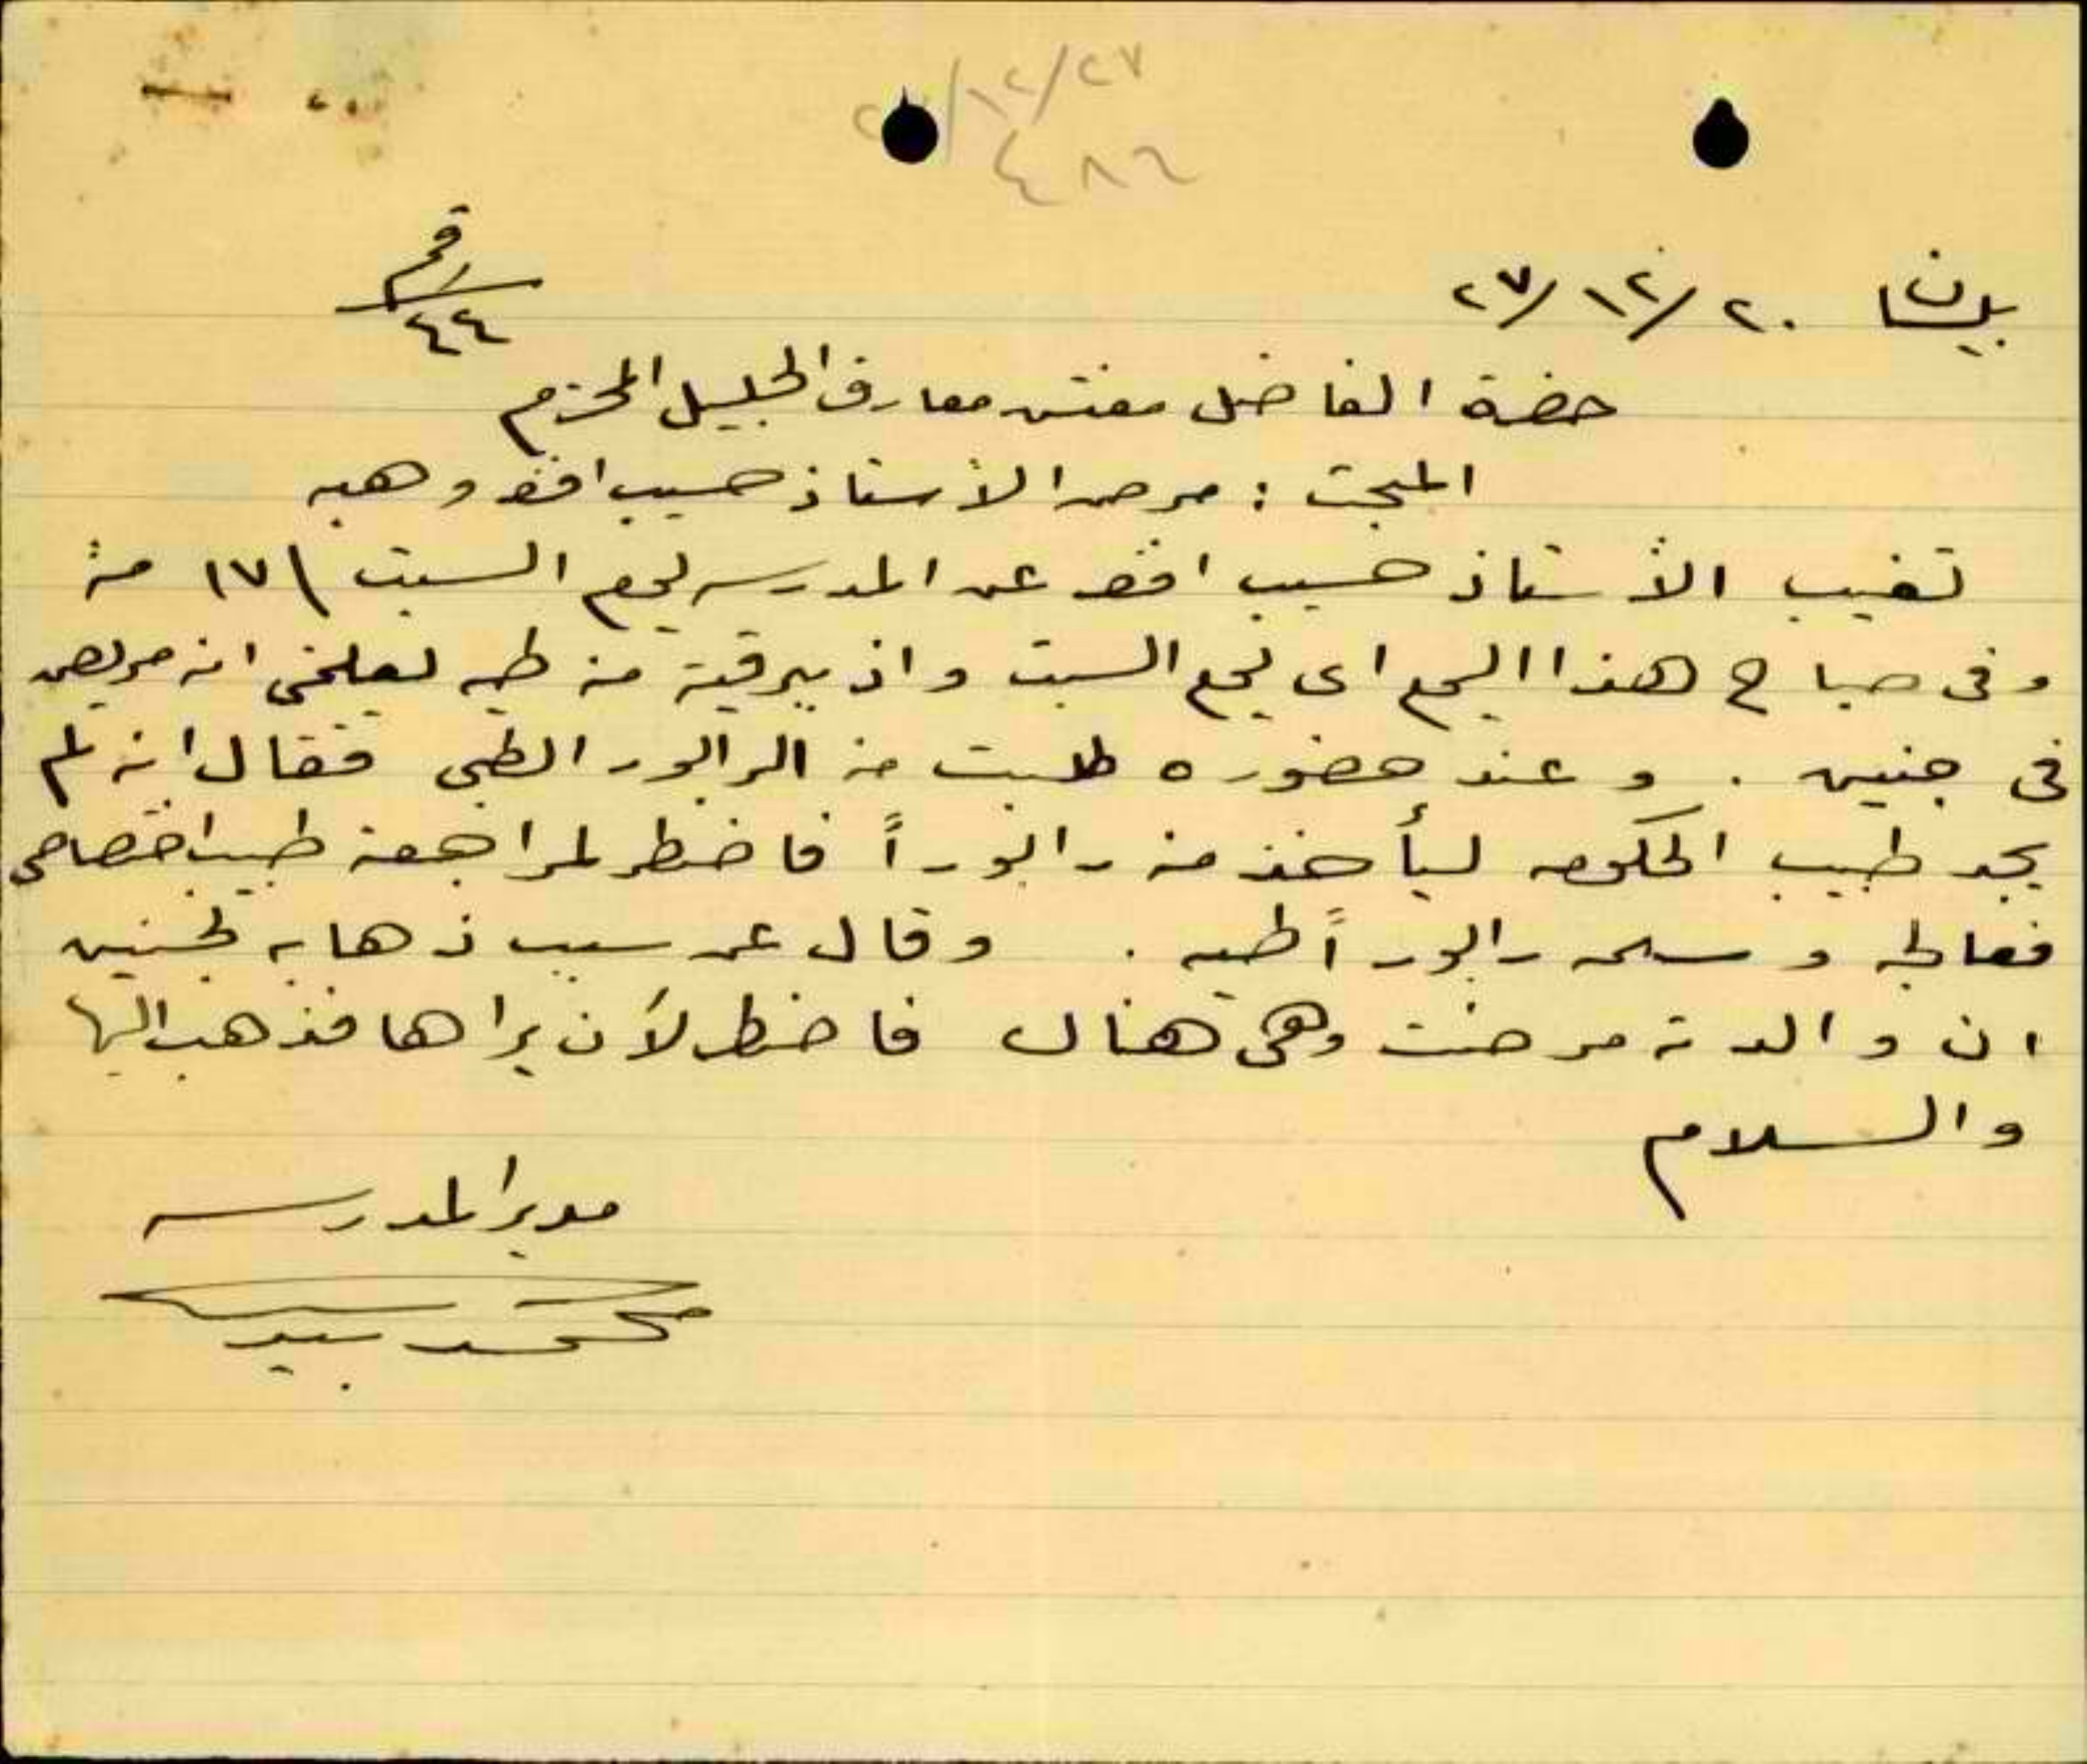 ٢٧/١٢/
٤٨٦
بيسان ٢٠/١٢/٢٧
رقم
٤٤
حضرة الفاضل مفتش معارف الجليل المحترم
المبحث : مرض الأستاذ حسيب افندي وهبه
تغيب الأستاذ حسيب افندي عن المدرسه ليوم السبت ١٧/ منه
وفي صباح هذا اليوم اي يوم السبت واذ ببرقية منه طيه ليعلمني انه مريض
في جنين . وعند حضوره طلبت منه الرابور الطبي فقال انه لم
يجد طبيب الحكومه ليأخذ منه رابوراً فاضطر لمراجعة طبيب اختصاصي
فعالجه و سلمه رابوراً طيه . وقال عن سبب ذهابه لجنين
ان والدته مرضت وهي هناك فاضطر لأن يراها فذهب اليها
والسلام
مدير المدرسه
محمد